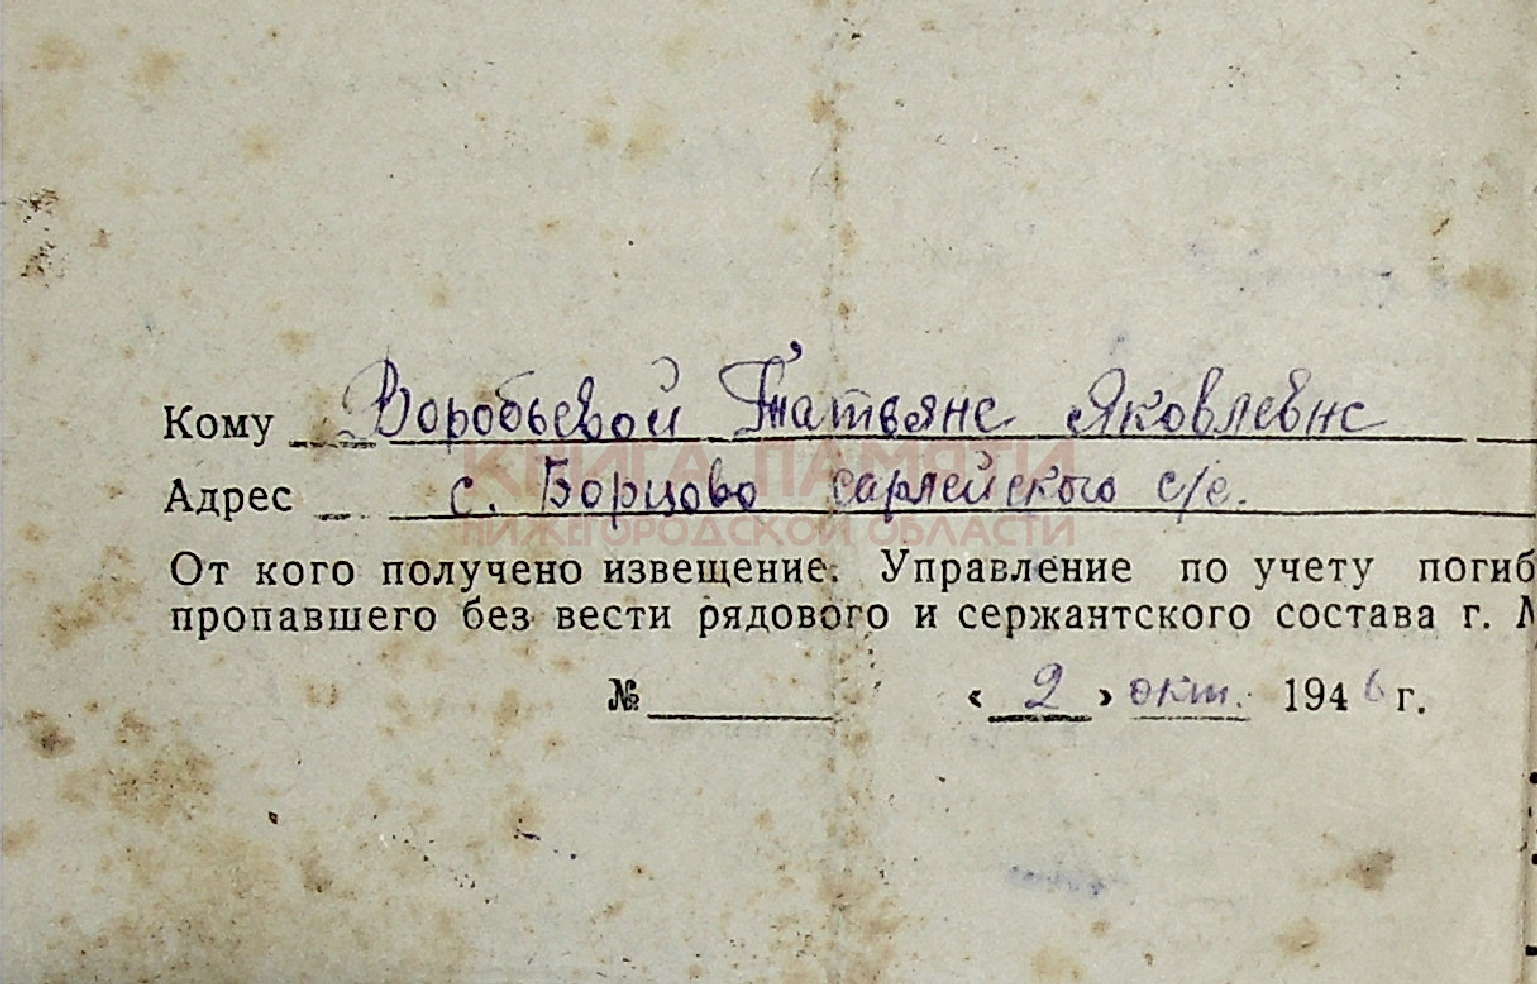 Кому Воробьевой Татьяне Яковлевне
Адрес с. Борцово сарлейского с/с.
КНИГА ПАМЯТИ
НИЖЕГОРОДСКОЙ ОБЛАСТИ
От кого получено извещение. Управление по учету погиб
пропавшего без вести рядового и сержантского состава г. М
№ « 2 » окт. 1946 г.